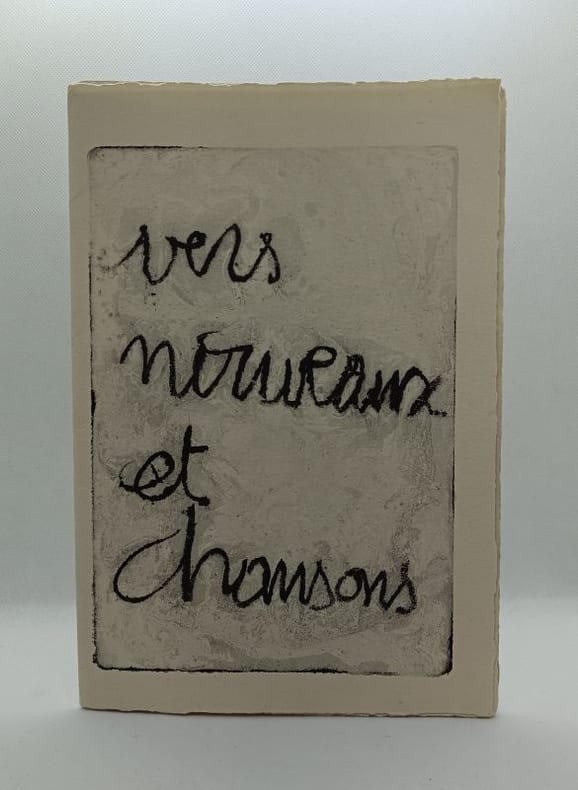 vers
nouveaux
et
chansons